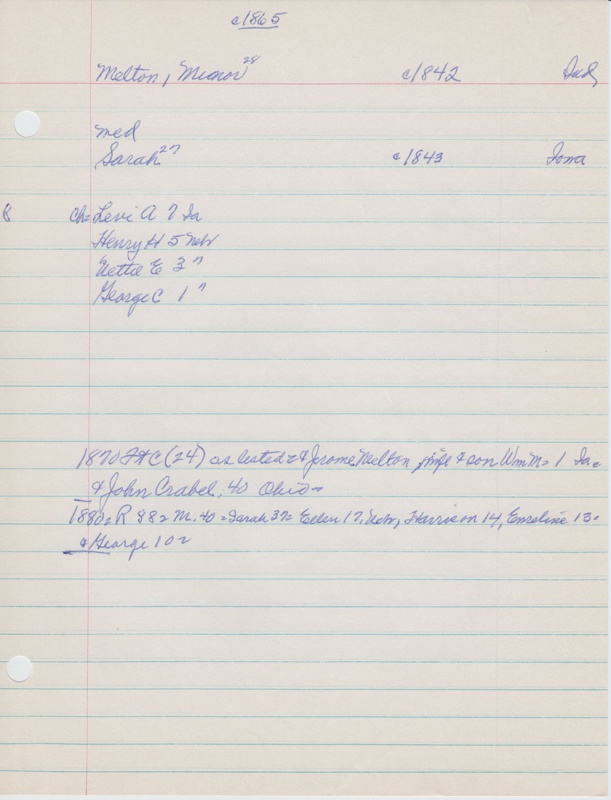 c1865
Melton, Minor 28 c1842 Ind,
med
Sarah 27 c1843 Iowa
8 ch= Levi A 7 Ia
Henry H 5 Nebr
Nettie E 3 "
George C 1 "
1870 (24) as listed & Jerome Melton, wife & son Wm M= 1 Ia=
& John Crabel, 40 Ohio=
1880= R 88= M. 40= Sarah 37= 17, Nebr, Harrison 14, Emeline 13=
& George 10=